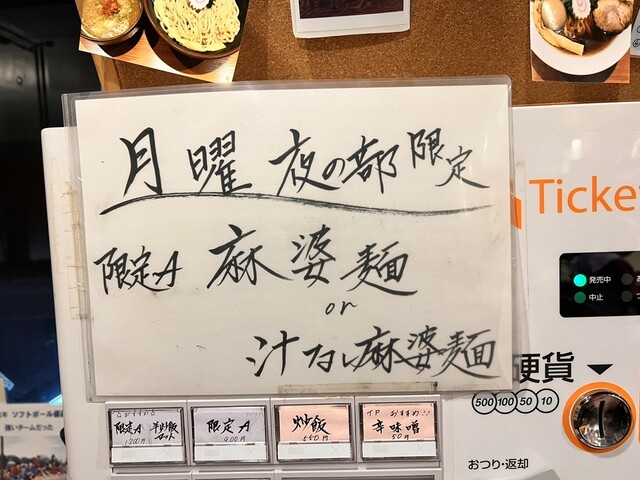 月曜 夜の部 限定
限定A 麻婆麺
or
汁なし麻婆麺
Ticke
発売中
中止
硬貨
500 100 50 10
おつり・返却
限定A 半炒飯
セット
1200円
限定A
900円
炒飯
550円
T.P おすすめ!!
辛味噌
50円
ソフトボール
強いチームだった